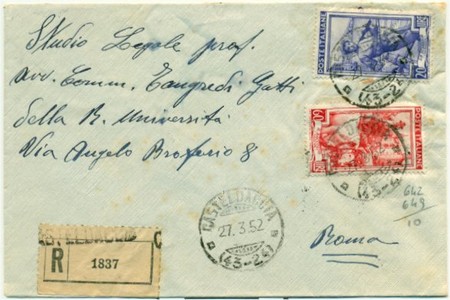 Studio Legale prof.
avv. Comm. Tancredi Gatti
della R. Università
Via Angelo Brofferio 8
Roma
POSTE ITALIANE
POSTE ITALIANE
(43-24)
CASTELDACCIA
27.3.52
(43-24)
R 1837
642
649
10